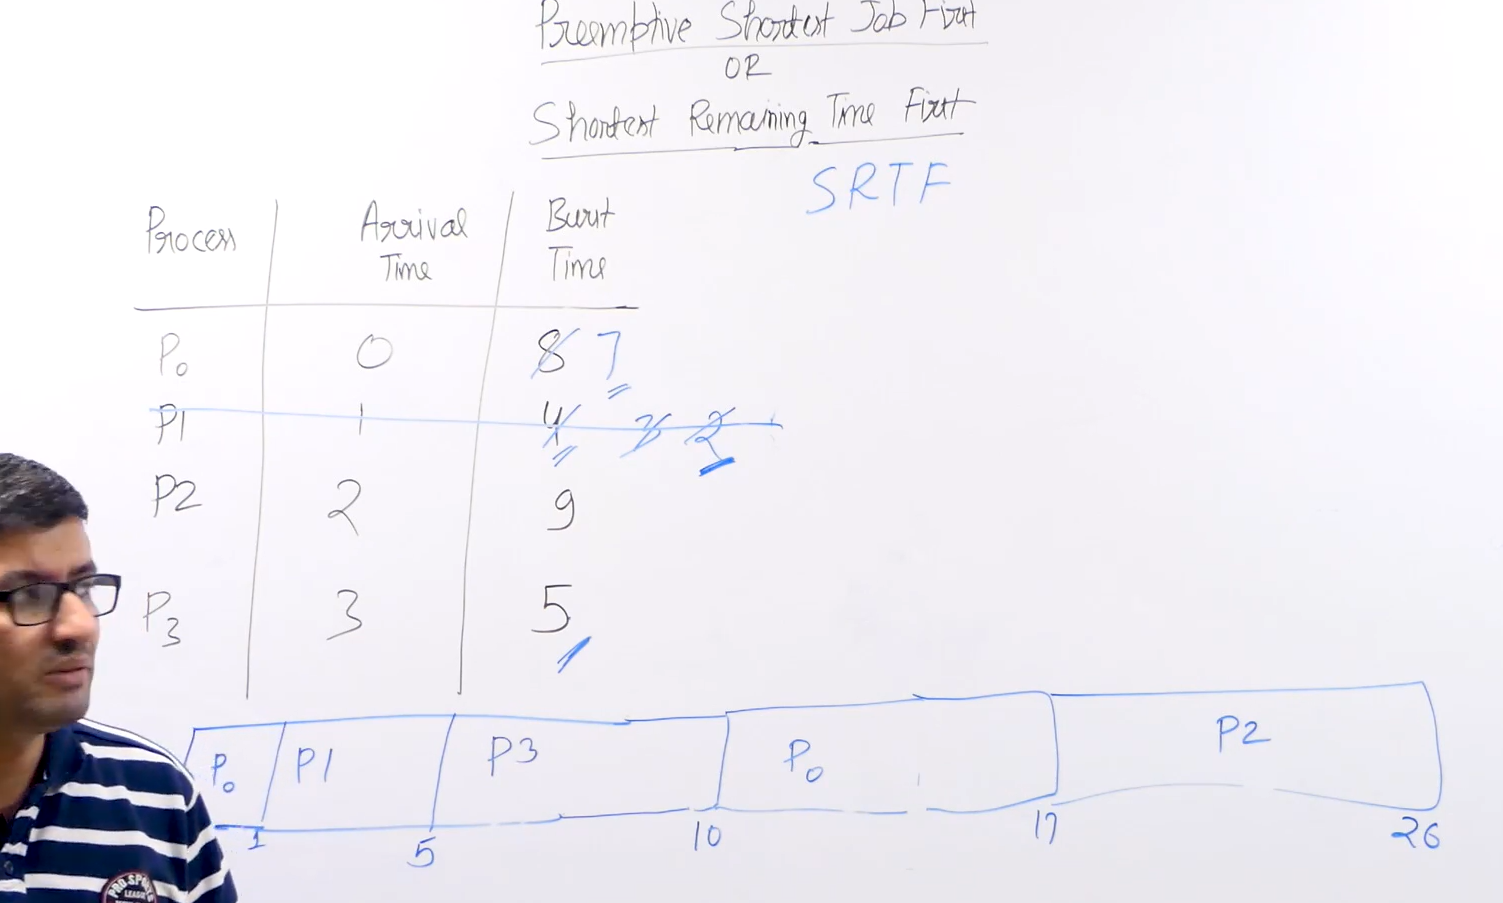 Preemptive Shortest Job First
OR
Shortest Remaining Time First
SRTF
Process Arrival Time Burst Time
P0 0 8 7
P1 1 4 3 2
P2 2 9
P3 3 5
P0 P1 P3 P0 P2
1 5 10 17 26
PRO SPORTS
LEAGUE